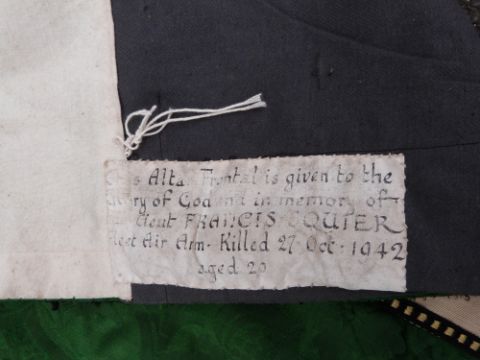 Altar Frontal is given to the
Glory of God and in memory of
Lieut FRANCIS
Fleet Air Arm - Killed 27 Oct - 1942
aged 20